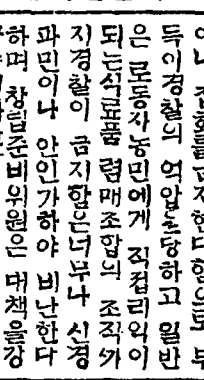 이나 집회를금지한다함으로 부
득이경찰의 억압을당하고 일반
은 로동자농민에게 직접리익이
되는식료품 렴매조합의 조직까
지경찰이 금지함은너무나 신경
과민이나 안인가하야 비난한다
하며 창립준비위원은 대책을강